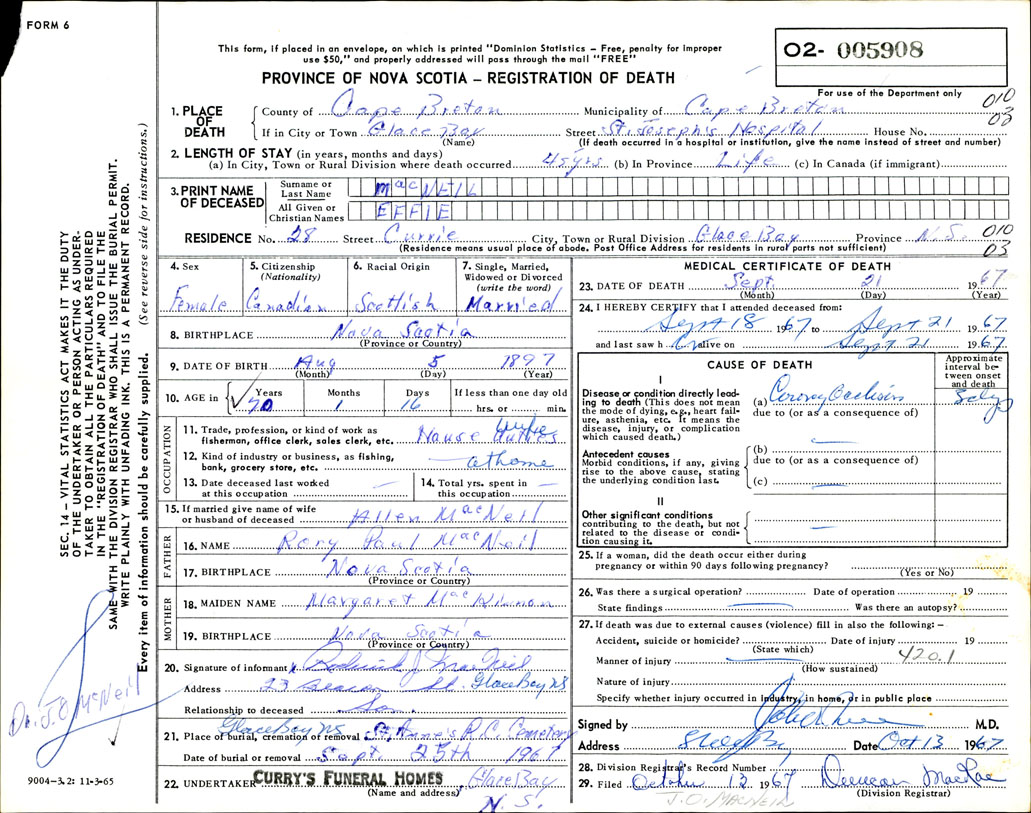 FORM 6
This form, if placed in an envelope, on which is printed "Dominion Statistics – Free, penalty for improper
use $50," and properly addressed will pass through the mail "FREE"
PROVINCE OF NOVA SCOTIA – REGISTRATION OF DEATH
O2- 005908
For use of the Department only
010
03
1. PLACE OF DEATH
County of Cape Breton Municipality of Cape Breton
If in City or Town Glace Bay Street St. Joseph's Hospital House No.
(Name) (If death occurred in a hospital or institution, give the name instead of street and number)
2. LENGTH OF STAY (in years, months and days)
(a) In City, Town or Rural Division where death occurred 45 yrs (b) In Province Life (c) In Canada (if immigrant)
3. PRINT NAME OF DECEASED
Surname or Last Name MacNEIL
All Given or Christian Names EFFIE
RESIDENCE No. 28 Street Currie City, Town or Rural Division Glace Bay Province N.S.
(Residence means usual place of abode. Post Office Address for residents in rural parts not sufficient)
010
03
4. Sex
Female
5. Citizenship
(Nationality)
Canadian
6. Racial Origin
Scottish
7. Single, Married,
Widowed or Divorced
(write the word)
Married
8. BIRTHPLACE Nova Scotia
(Province or Country)
9. DATE OF BIRTH Aug 5 1897
(Month) (Day) (Year)
10. AGE in
Years Months Days If less than one day old
70 1 16 hrs. or min.
OCCUPATION
11. Trade, profession, or kind of work as
fisherman, office clerk, sales clerk, etc. House Duties
12. Kind of industry or business, as fishing,
bank, grocery store, etc. at home
13. Date deceased last worked
at this occupation —
14. Total yrs. spent in
this occupation —
15. If married give name of wife
or husband of deceased Allen MacNeil
FATHER
16. NAME Rory Paul MacNeil
17. BIRTHPLACE Nova Scotia
(Province or Country)
MOTHER
18. MAIDEN NAME Margaret MacKinnon
19. BIRTHPLACE Nova Scotia
(Province or Country)
20. Signature of informant Roderick J. MacNeil
Address 23 St. Glace Bay NS
Relationship to deceased Son
Glace Bay NS
21. Place of burial, cremation or removal St. Anne's R.C. Cemetery
Date of burial or removal Sept. 25th 1967
22. UNDERTAKER CURRY'S FUNERAL HOMES Glace Bay
(Name and address) N.S.
MEDICAL CERTIFICATE OF DEATH
23. DATE OF DEATH Sept. 21 1967
(Month) (Day) (Year)
24. I HEREBY CERTIFY that I attended deceased from:
Sept 18 1967 to Sept 21 1967
and last saw her alive on Sept 21 1967
CAUSE OF DEATH
Approximate
interval be-
tween onset
and death
I
Disease or condition directly lead-
ing to death (This does not mean
the mode of dying, e.g., heart fail-
ure, asthenia, etc. It means the
disease, injury, or complication
which caused death.)
(a) Coronary Occlusion
due to (or as a consequence of)
Antecedent causes
Morbid conditions, if any, giving
rise to the above cause, stating
the underlying condition last.
(b)
due to (or as a consequence of)
(c) —
II
Other significant conditions
contributing to the death, but not
related to the disease or condi-
tion causing it.
25. If a woman, did the death occur either during
pregnancy or within 90 days following pregnancy?
(Yes or No)
26. Was there a surgical operation? Date of operation 19
State findings Was there an autopsy?
27. If death was due to external causes (violence) fill in also the following: –
Accident, suicide or homicide? Date of injury 19
(State which)
420.1
Manner of injury
(How sustained)
Nature of injury
Specify whether injury occurred in Industry, in home, or in public place
Signed by M.D.
Address Glace Bay Date Oct 13 1967
28. Division Registrar's Record Number
29. Filed October 13 1967 Duncan MacRae
(Division Registrar)
J.O. MACNEIL
SEC. 14 – VITAL STATISTICS ACT MAKES IT THE DUTY
OF THE UNDERTAKER OR PERSON ACTING AS UNDER-
TAKER TO OBTAIN ALL THE PARTICULARS REQUIRED
IN THE "REGISTRATION OF DEATH" AND TO FILE THE
SAME WITH THE DIVISION REGISTRAR WHO SHALL ISSUE THE BURIAL PERMIT.
WRITE PLAINLY WITH UNFADING INK. THIS IS A PERMANENT RECORD.
Every item of information should be carefully supplied. (See reverse side for instructions.)
Dr. J.O. McNeil
9004-3.2: 11-3-65